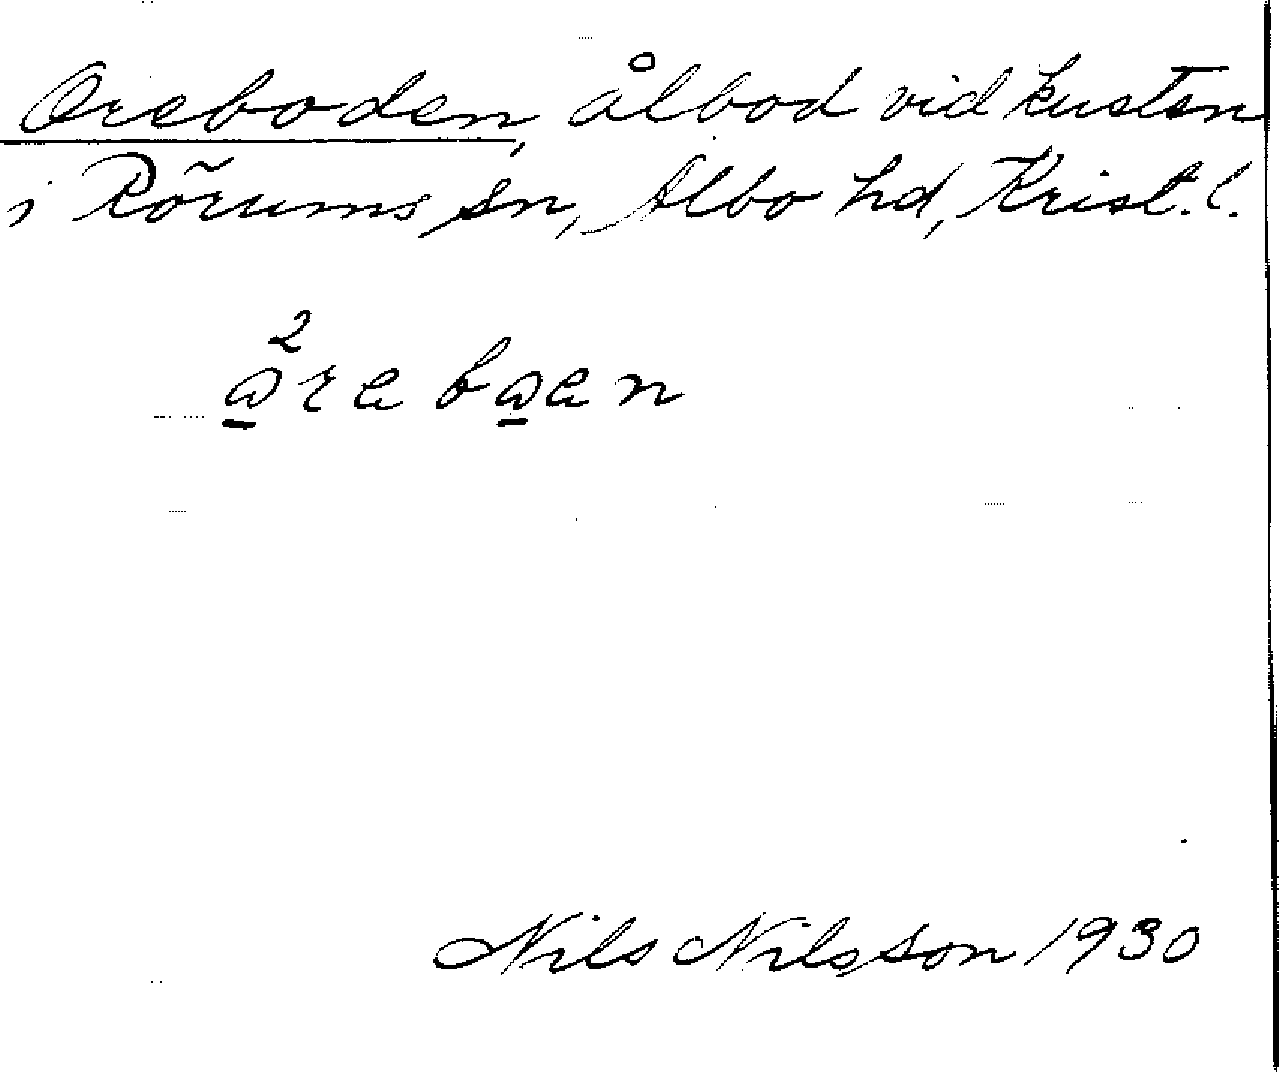 Oreboden, ålbod vid kusten
i Rörums sn, Albo hd, Krist. l.
Nils Nilsson 1930